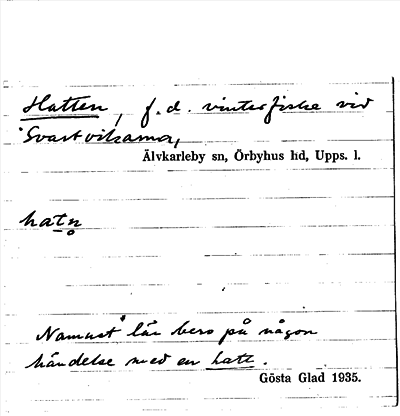 Hatten, f.d. vinterfiske vid
Svartviksarna,
Älvkarleby sn, Örbyhus hd, Upps. l.
hatn̥
Namnet lär bero på någon
händelse med en hatt.
Gösta Glad 1935.